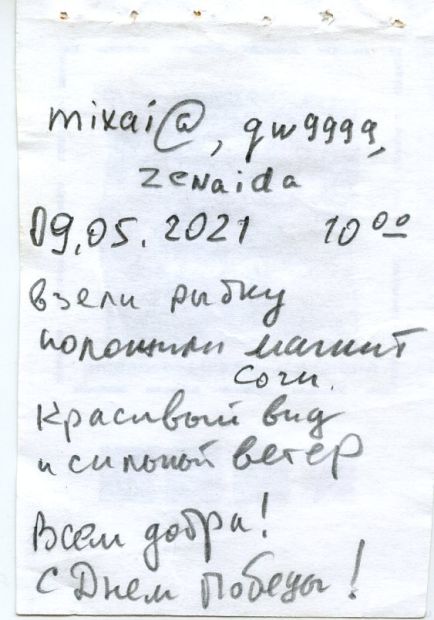 mixai@, qw9999,
zenaida
09.05.2021 10 00
взели рыбку
положили магнит
Сочи.
Красивый вид
и сильный ветер
Всем добра!
С Днем Победы!